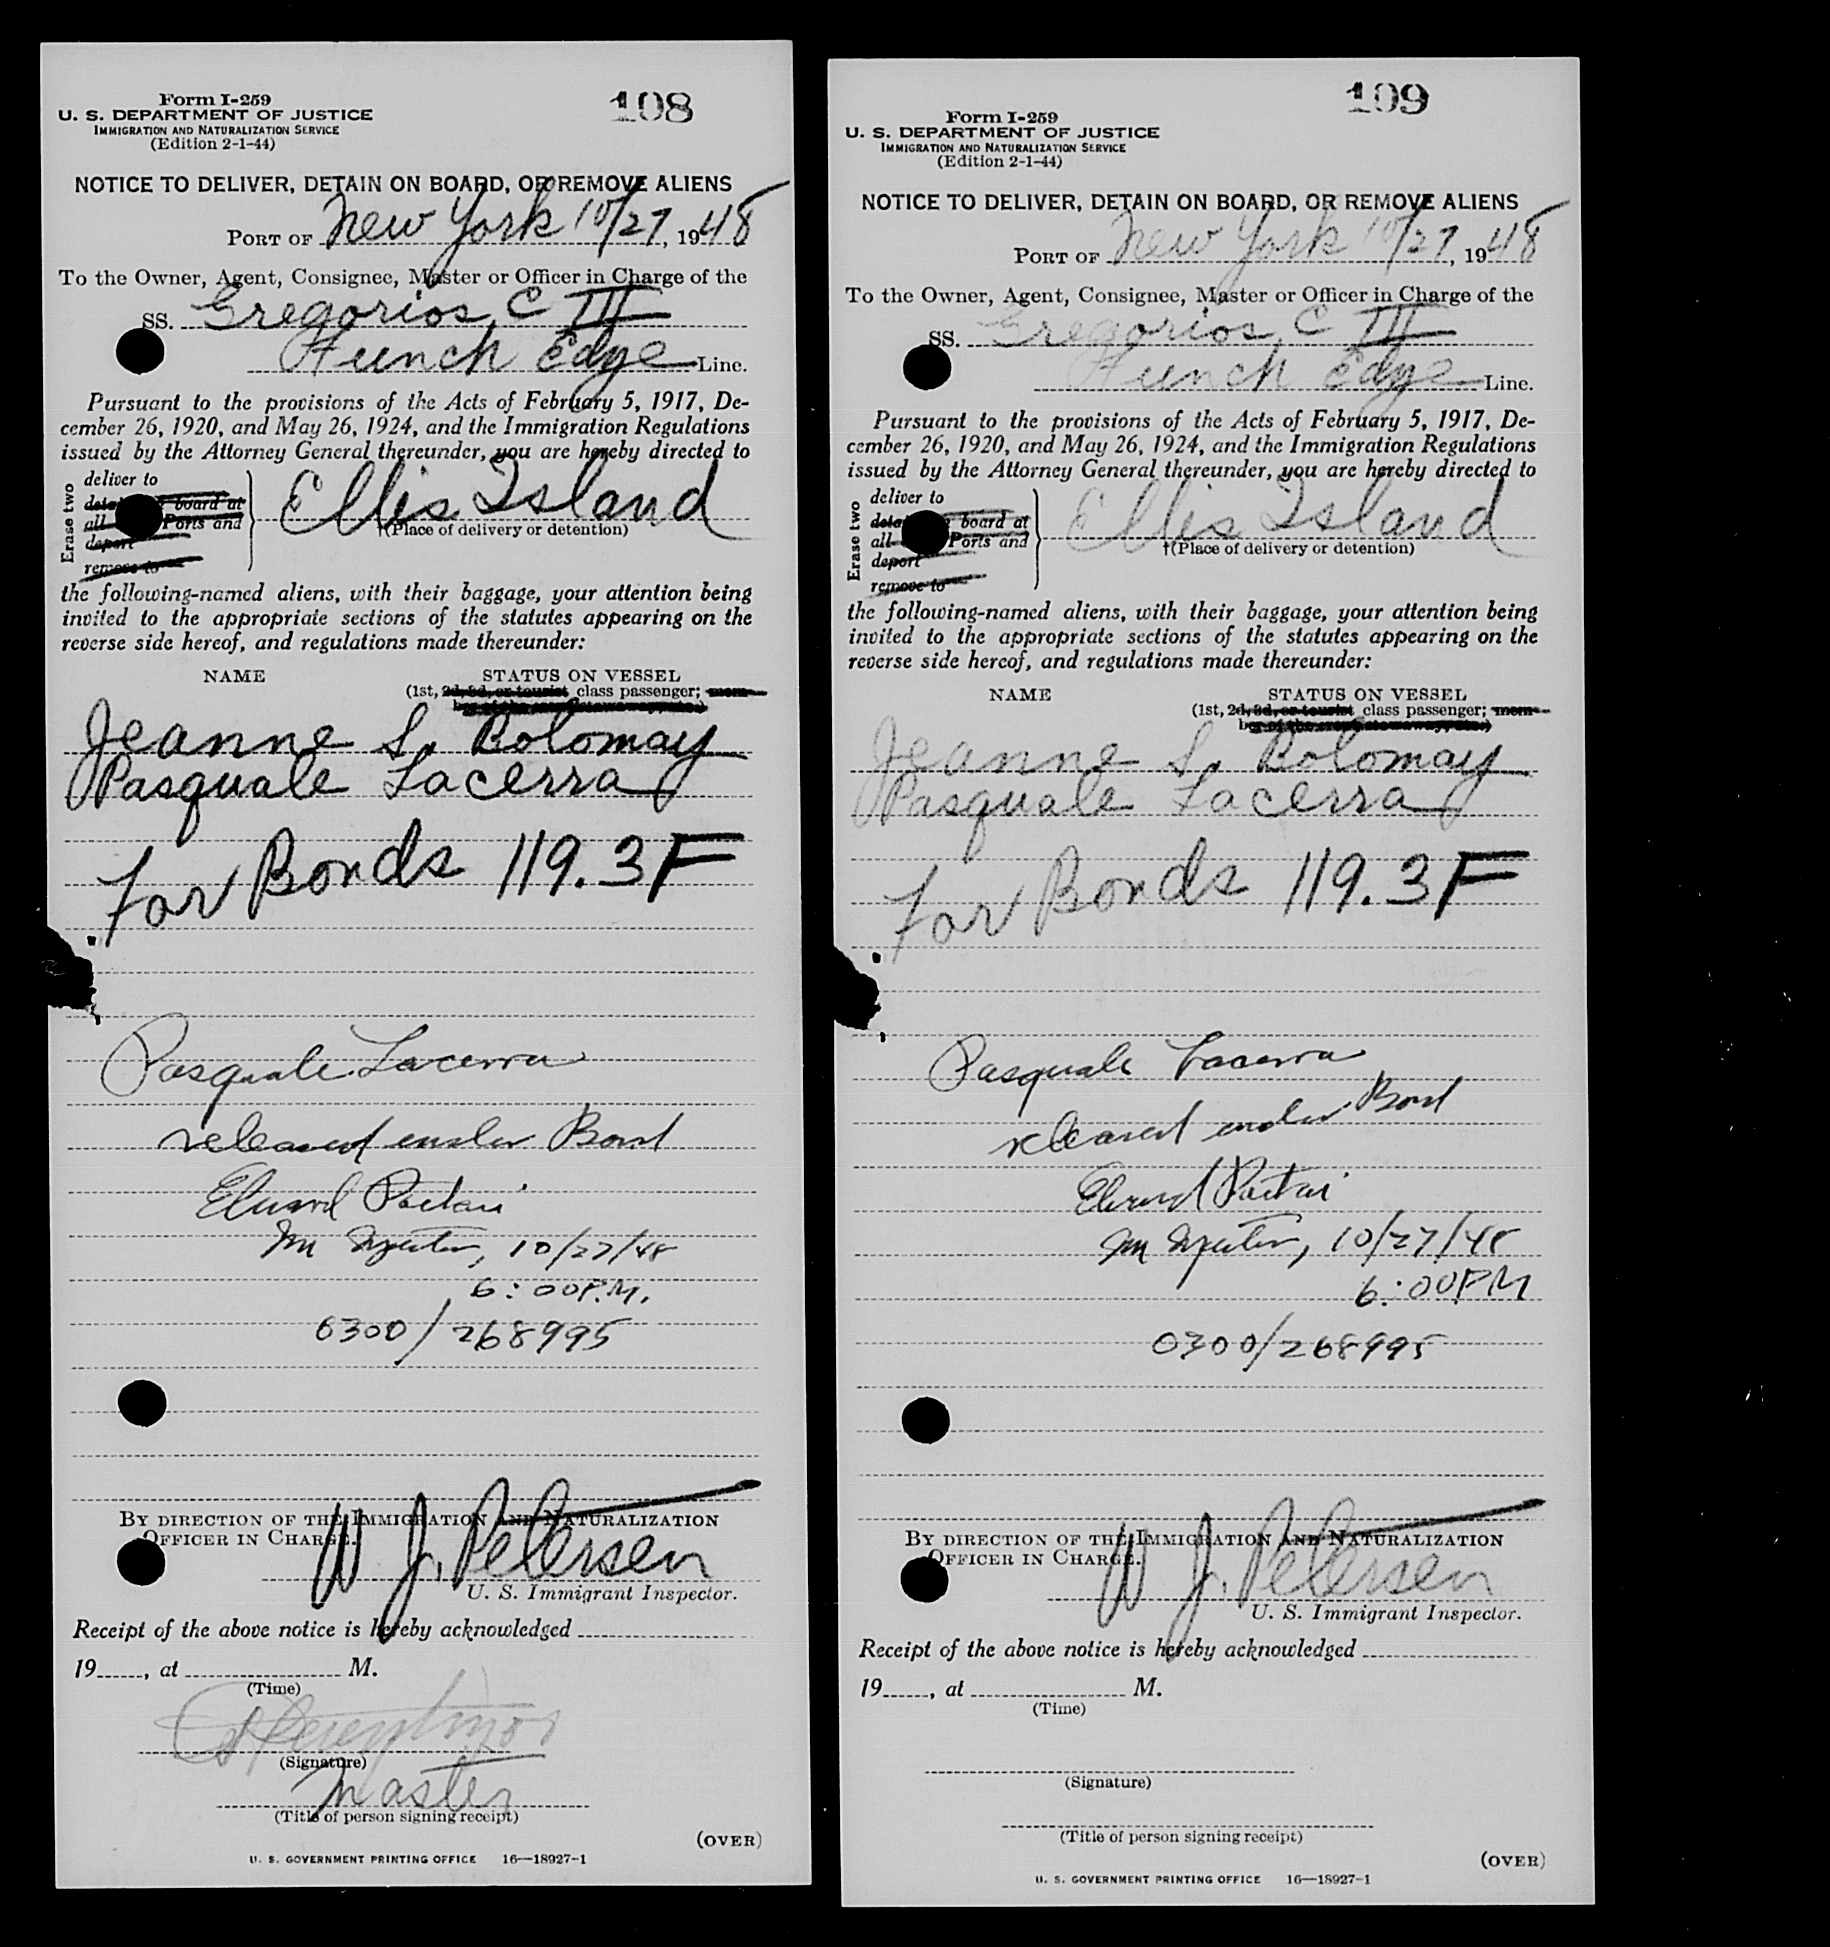 108
Form I-259
U. S. DEPARTMENT OF JUSTICE
IMMIGRATION AND NATURALIZATION SERVICE
(Edition 2-1-44)
NOTICE TO DELIVER, DETAIN ON BOARD, OR REMOVE ALIENS
PORT OF New York 10/27, 1948
To the Owner, Agent, Consignee, Master or Officer in Charge of the
SS. Gregorios, C III
Funch Edye Line.
Pursuant to the provisions of the Acts of February 5, 1917, De-
cember 26, 1920, and May 26, 1924, and the Immigration Regulations
issued by the Attorney General thereunder, you are hereby directed to
Erase two
deliver to
board at
all Ports and
deport
remove to
Ellis Island
†(Place of delivery or detention)
the following-named aliens, with their baggage, your attention being
invited to the appropriate sections of the statutes appearing on the
reverse side hereof, and regulations made thereunder:
NAME STATUS ON VESSEL
(1st, 2d, 3d, or tourist class passenger; mem-
ber of the crew, stowaway, etc.)
Jeanne S. Bolomay
Pasquale Lacerra
for Bonds 119.3F
Pasquale Lacerra
released under Bond
Imm Inspector, 10/27/48
6:00 P.M.
0300/268995
BY DIRECTION OF THE IMMIGRATION AND NATURALIZATION
OFFICER IN CHARGE.
W J. Petersen
U. S. Immigrant Inspector.
Receipt of the above notice is hereby acknowledged
19, at M.
(Time)
(Signature)
Master
(Title of person signing receipt)
(OVER)
U. S. GOVERNMENT PRINTING OFFICE 16—18927-1
109
Form I-259
U. S. DEPARTMENT OF JUSTICE
IMMIGRATION AND NATURALIZATION SERVICE
(Edition 2-1-44)
NOTICE TO DELIVER, DETAIN ON BOARD, OR REMOVE ALIENS
PORT OF New York 10/27, 1948
To the Owner, Agent, Consignee, Master or Officer in Charge of the
SS. Gregorios, C III
Funch Edye Line.
Pursuant to the provisions of the Acts of February 5, 1917, De-
cember 26, 1920, and May 26, 1924, and the Immigration Regulations
issued by the Attorney General thereunder, you are hereby directed to
Erase two
deliver to
board at
all Ports and
deport
remove to
Ellis Island
†(Place of delivery or detention)
the following-named aliens, with their baggage, your attention being
invited to the appropriate sections of the statutes appearing on the
reverse side hereof, and regulations made thereunder:
NAME STATUS ON VESSEL
(1st, 2d, 3d, or tourist class passenger; mem-
ber of the crew, stowaway, etc.)
Jeanne S. Bolomay
Pasquale Lacerra
for Bonds 119.3F
Pasquale Lacerra
released under Bond
Imm Inspector, 10/27/48
6:00PM
0300/268995
BY DIRECTION OF THE IMMIGRATION AND NATURALIZATION
OFFICER IN CHARGE.
W J. Petersen
U. S. Immigrant Inspector.
Receipt of the above notice is hereby acknowledged
19, at M.
(Time)
(Signature)
(Title of person signing receipt)
(OVER)
U. S. GOVERNMENT PRINTING OFFICE 16—18927-1